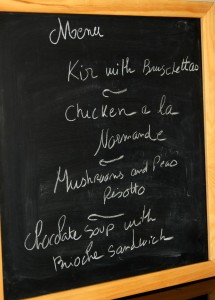 Menu
Kir with Bruschettas
Chicken a la
Normande
Mushrooms and Peas
Risotto
Chocolate soup with
Brioche sandwich